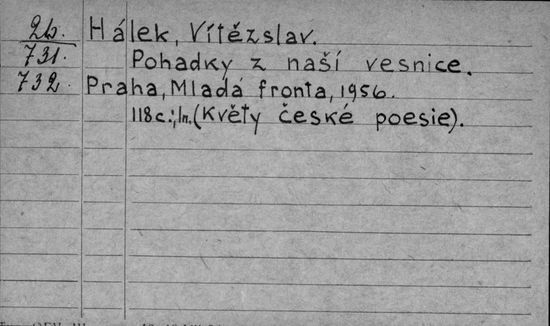 2b. Hálek, Vítězslav.
731. Pohadky z naší vesnice.
732. Praha, Mladá fronta, 1956.
118c.; ln. (Květy české poesie).